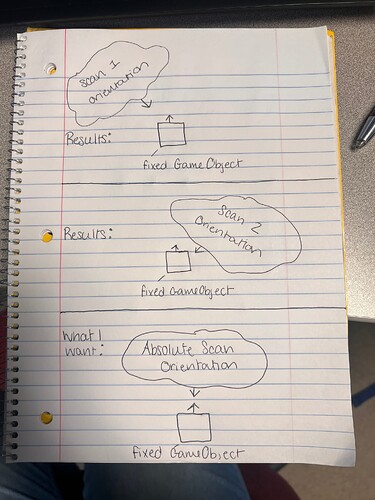 Scan 1
orientation
Results:
fixed GameObject
Scan 2
Orientation
Results:
fixed GameObject
What I
want:
Absolute Scan
Orientation
fixed GameObject